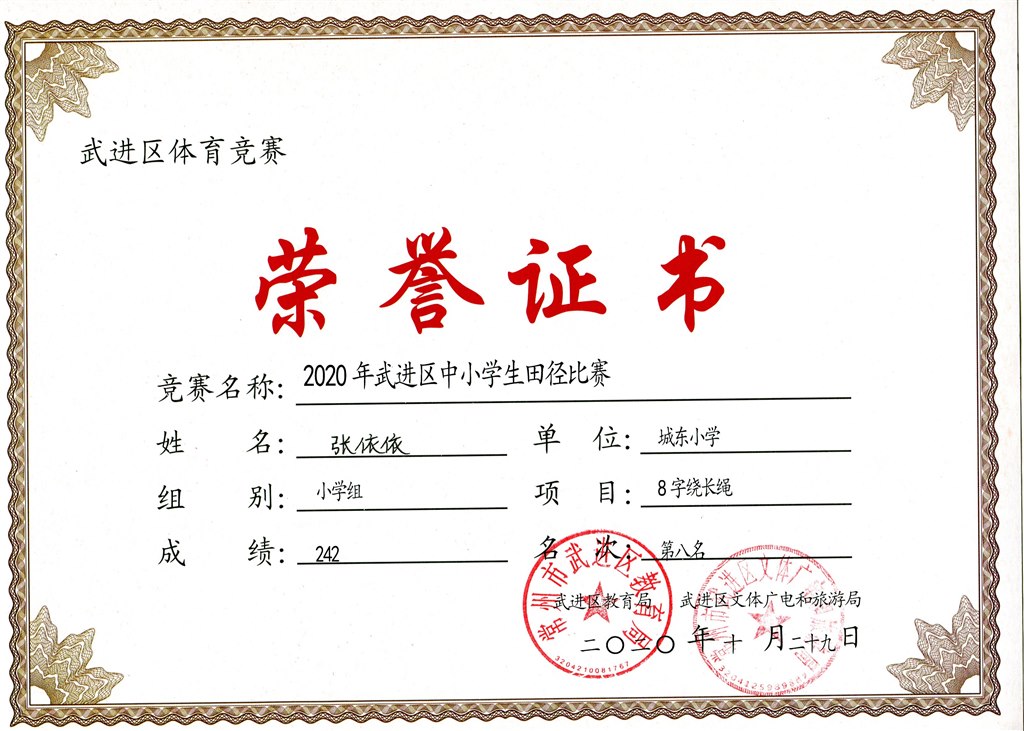 武进区体育竞赛
荣誉证书
竞赛名称: 2020年武进区中小学生田径比赛
姓 名: 张依依 单 位: 城东小学
组 别: 小学组 项 目: 8字绕长绳
成 绩: 242 名 次: 第八名
武进区教育局 武进区文体广电和旅游局
二〇二〇年十月二十九日
常州市武进区教育局
3204210081767